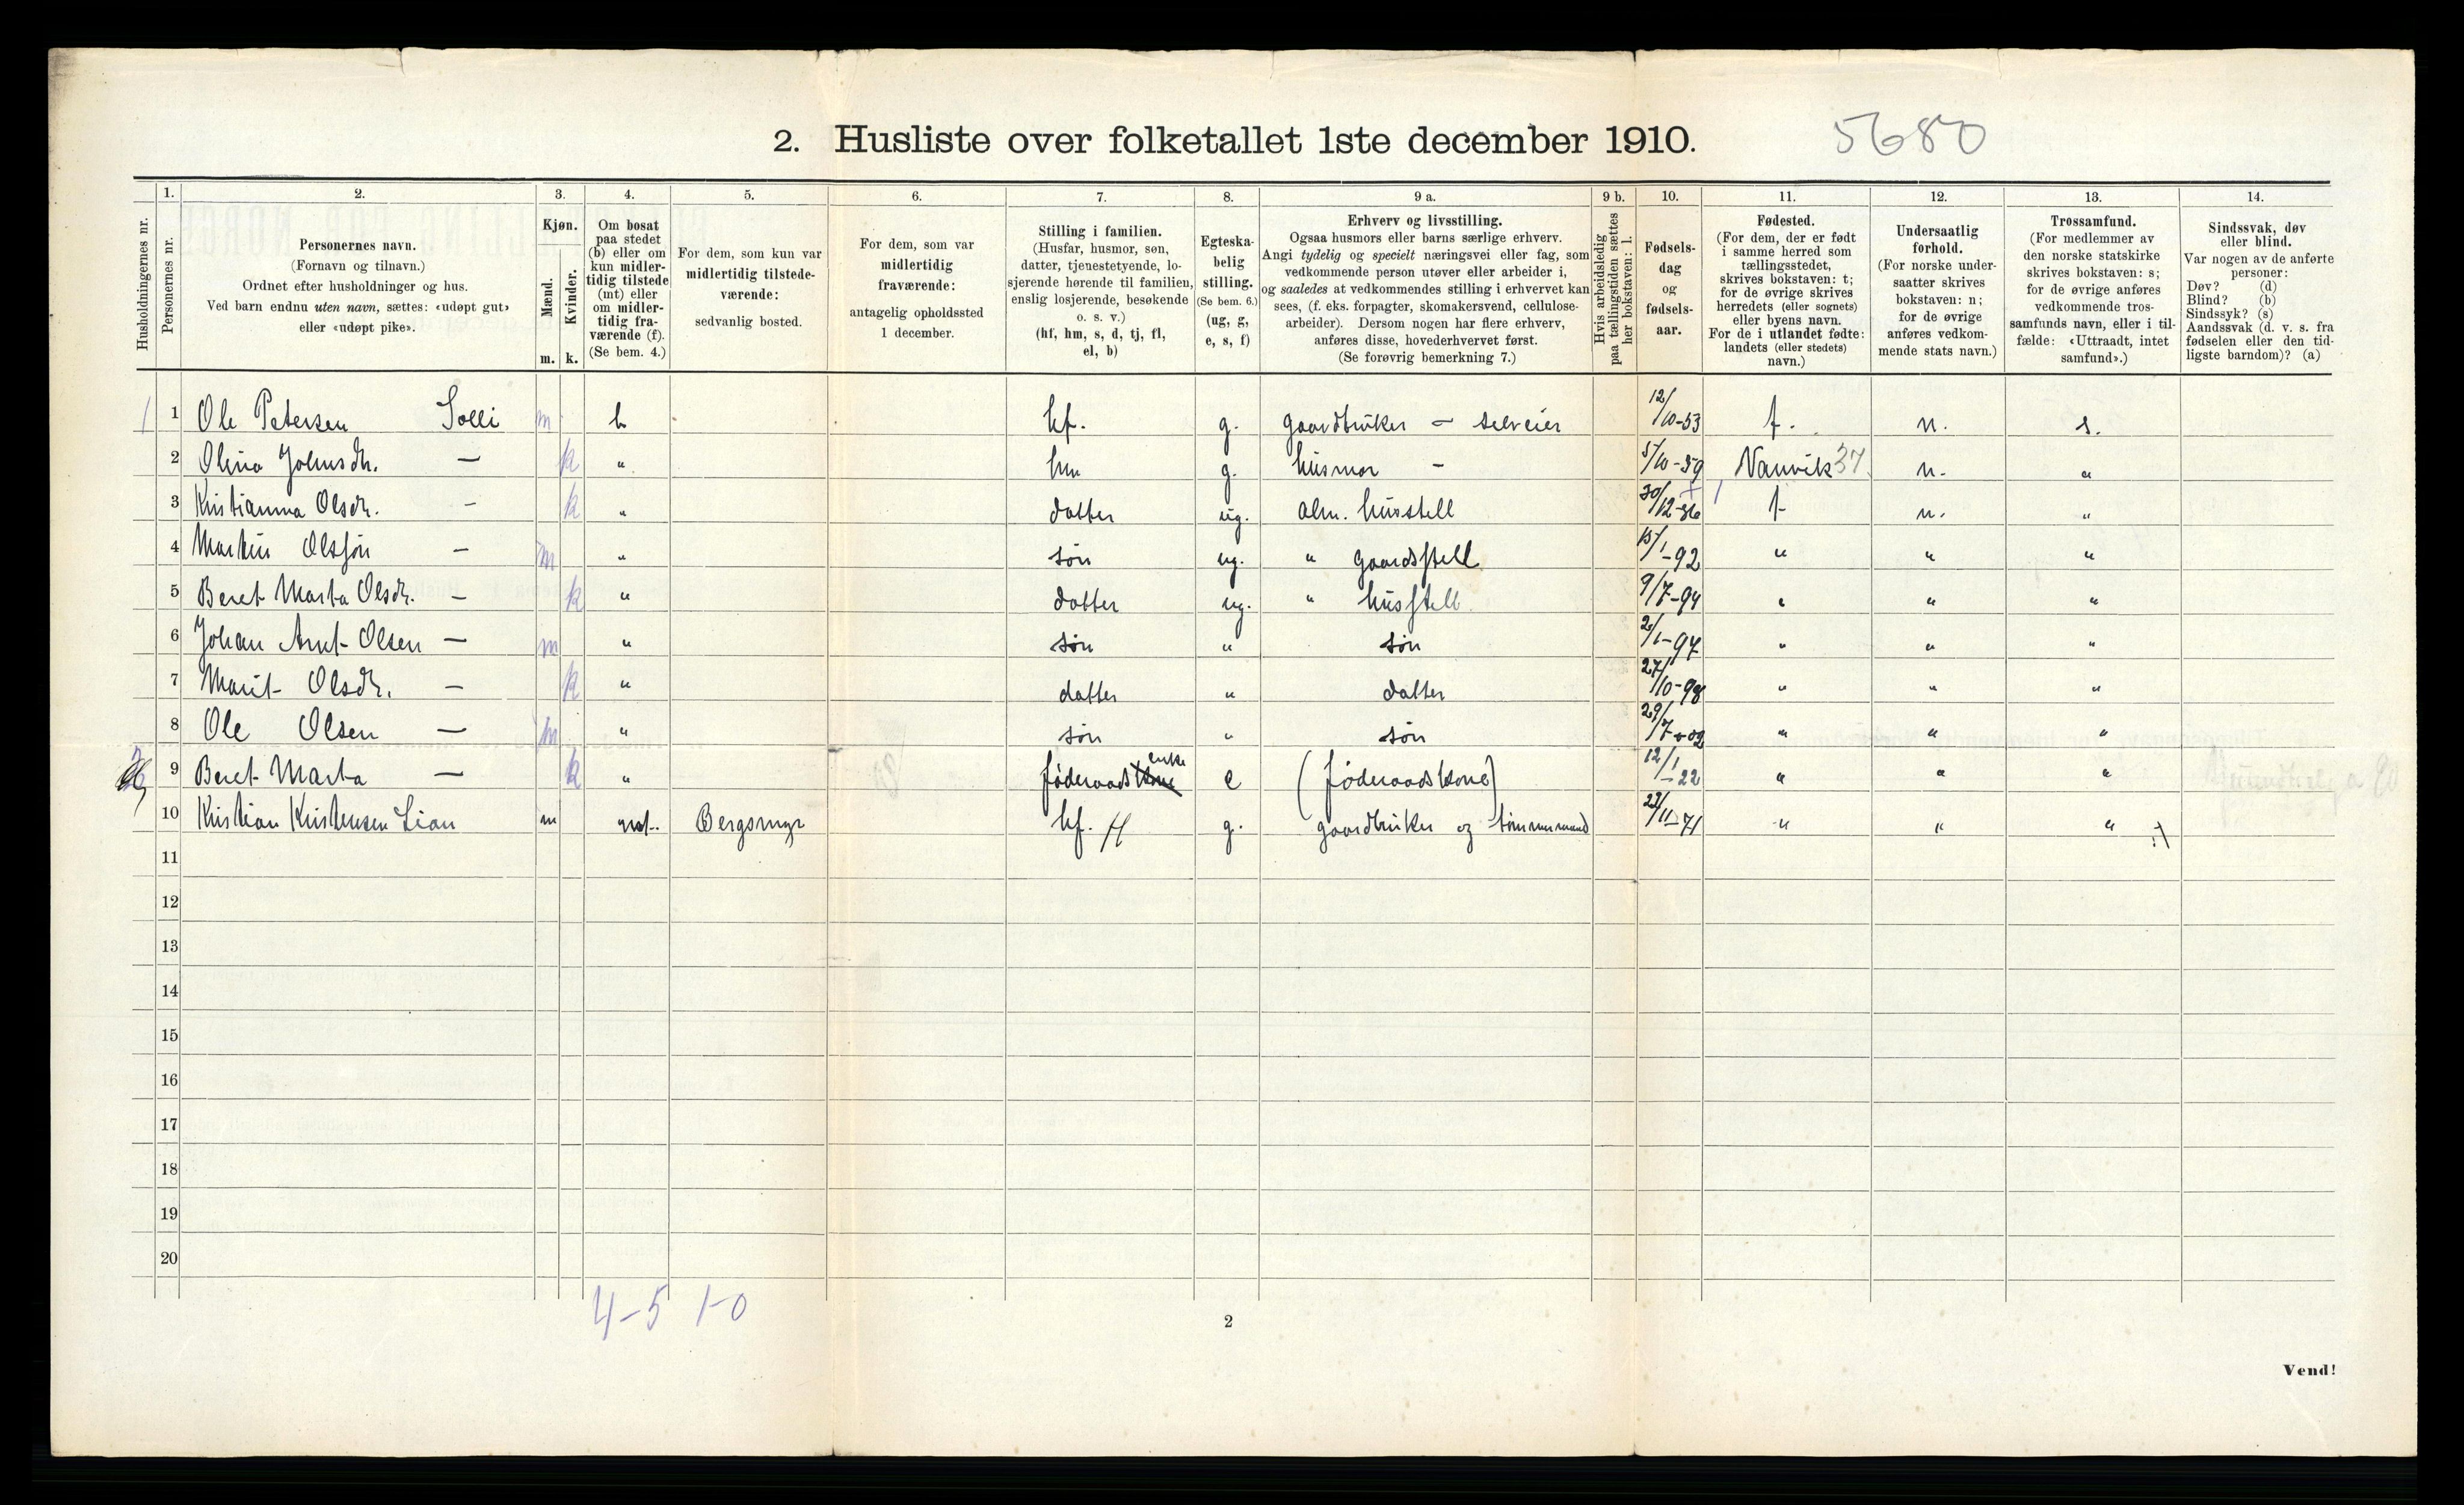 2. Husliste over folketallet 1ste december 1910. 5680
1. 2. 3. 4. 5. 6. 7. 8. 9 a. 9 b. 10. 11. 12. 13. 14.
Husholdningernes nr.
Personernes nr.
Personernes navn.
(Fornavn og tilnavn.)
Ordnet efter husholdninger og hus.
Ved barn endnu uten navn, sættes: «udøpt gut»
eller «udøpt pike».
Kjøn.
Mænd.
Kvinder.
m. k.
Om bosat
paa stedet
(b) eller om
kun midler-
tidig tilstede
(mt) eller
om midler-
tidig fra-
værende (f).
(Se bem. 4.)
For dem, som kun var
midlertidig tilstede-
værende:
sedvanlig bosted.
For dem, som var
midlertidig
fraværende:
antagelig opholdssted
1 december.
Stilling i familien.
(Husfar, husmor, søn,
datter, tjenestetyende, lo-
sjerende hørende til familien,
enslig losjerende, besøkende
o. s. v.)
(hf, hm, s, d, tj, fl,
el, b)
Egteska-
belig
stilling.
(Se bem. 6.)
(ug, g,
e, s, f)
Erhverv og livsstilling.
Ogsaa husmors eller barns særlige erhverv.
Angi tydelig og specielt næringsvei eller fag, som
vedkommende person utøver eller arbeider i,
og saaledes at vedkommendes stilling i erhvervet kan
sees, (f. eks. forpagter, skomakersvend, cellulose-
arbeider). Dersom nogen har flere erhverv,
anføres disse, hovederhvervet først.
(Se forøvrig bemerkning 7.)
Hvis arbeidsledig
paa tællingstiden sættes
her bokstaven: l.
Fødsels-
dag
og
fødsels-
aar.
Fødested.
(For dem, der er født
i samme herred som
tællingsstedet,
skrives bokstaven: t;
for de øvrige skrives
herredets (eller sognets)
eller byens navn.
For de i utlandet fødte:
landets (eller stedets)
navn.)
Undersaatlig
forhold.
(For norske under-
saatter skrives
bokstaven: n;
for de øvrige
anføres vedkom-
mende stats navn.)
Trossamfund.
(For medlemmer av
den norske statskirke
skrives bokstaven: s;
for de øvrige anføres
vedkommende tros-
samfunds navn, eller i til-
fælde: «Uttraadt, intet
samfund».)
Sindssvak, døv
eller blind.
Var nogen av de anførte
personer:
Døv? (d)
Blind? (b)
Sindssyk? (s)
Aandssvak (d. v. s. fra
fødselen eller den tid-
ligste barndom)? (a)
1 1 Ole Petersen Solli m b hf. g. gaardbruker - selveier 12/10-53 t. n. s.
2 Olina Johnsdr. — k " hm g. husmor - 5/10-59 Nanvik 37 n. "
3 Kristianna Olsdr. - k " datter ug. alm. husstell 30/12-86 t n. "
4 Martin Olssøn - m " søn ug. " gaardsstell 15/1-92 " " "
5 Beret Marta Olsdr. - k " datter ug. " husstell 9/7-94 " " "
6 Johan Arnt Olsen — m " søn " søn 2/1-97 " " "
7 Marit Olsdr. — k " datter " datter 27/10-98 " " "
8 Ole Olsen — m " søn " søn 29/7-02 " " "
2 9 Beret Marta — k " føderaads enke e (føderaadskone) 12/1-22 " " "
10 Kristian Kristensen Lian m mt. Bergsmyr hf. H g. gaardbruker og tømmermand 22/11-71 " " "
11
12
13
14
15
16
17
18
19
20
4-5 1-0
2
Vend!